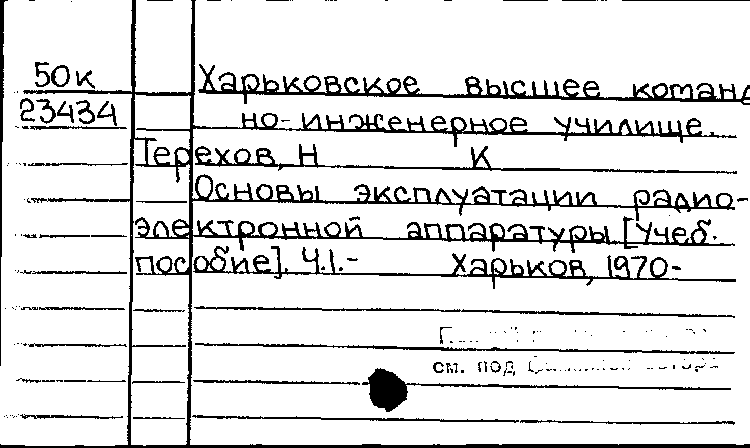 50к Харьковское высшее команд
23434 но-инженерное училище.
Терехов, Н К
Основы эксплуатации радио-
электронной аппаратуры [Учеб.
пособие]. Ч.1.- Харьков, 1970-
см. под